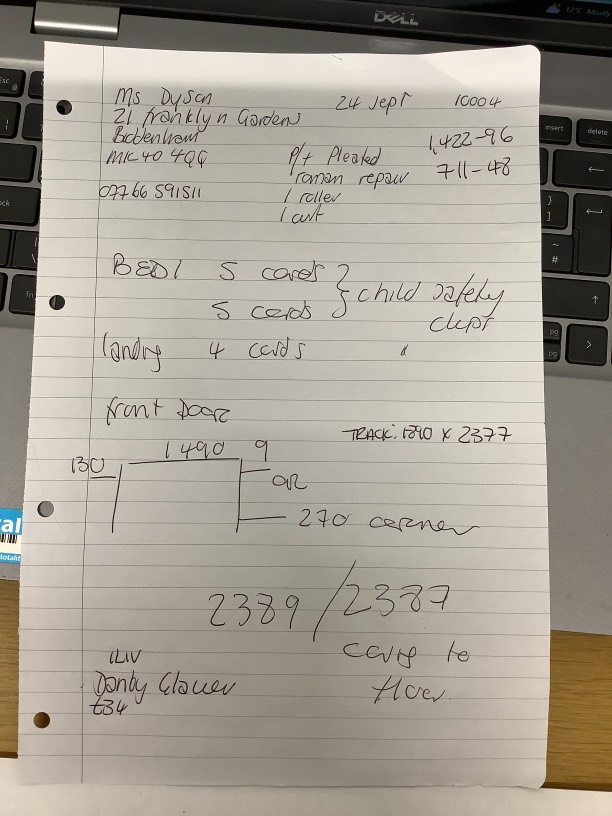 DELL
12°C Mostly
Ms Dyson 24 Sept 10004
21 Franklyn Gardens
Biddenham 1,422-96
MK40 4QG P/t Pleated 711-48
roman repair
07766 591511 1 roller
1 curt
BED1 5 cords } child safety
5 cords clept
landry 4 cords
front Door
TRACK: 1390 x 2377
130 1490 9
OR
270 corner
2389 / 2387
ceiling to
floor
ILIV
Danby Clover
£34
insert
delete